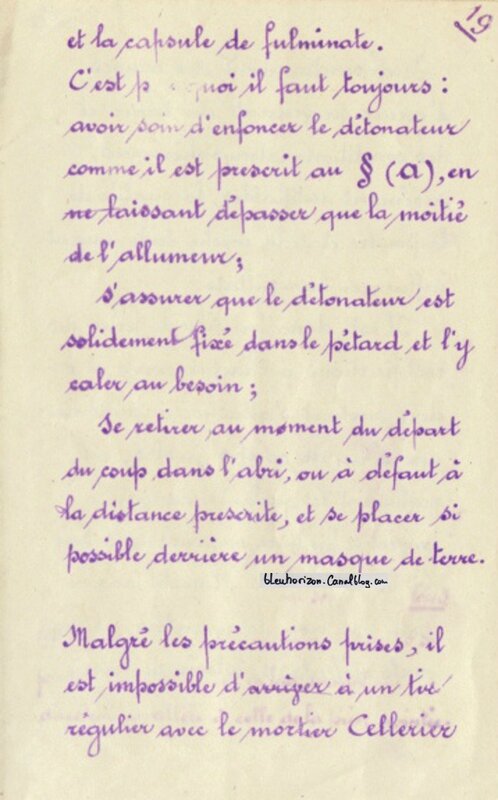 19
et la capsule de fulminate.
C'est p quoi il faut toujours :
avoir soin d'enfoncer le détonateur
comme il est prescrit au § (a), en
ne laissant dépasser que la moitié
de l'allumeur ;
s'assurer que le détonateur est
solidement fixé dans le pétard et l'y
caler au besoin ;
Se retirer au moment du départ
du coup dans l'abri, ou à défaut à
la distance prescrite, et se placer si
possible derrière un masque de terre.
bleuhorizon.Canalblog.com
Malgré les précautions prises, il
est impossible d'arriver à un tir
régulier avec le mortier Cellerier